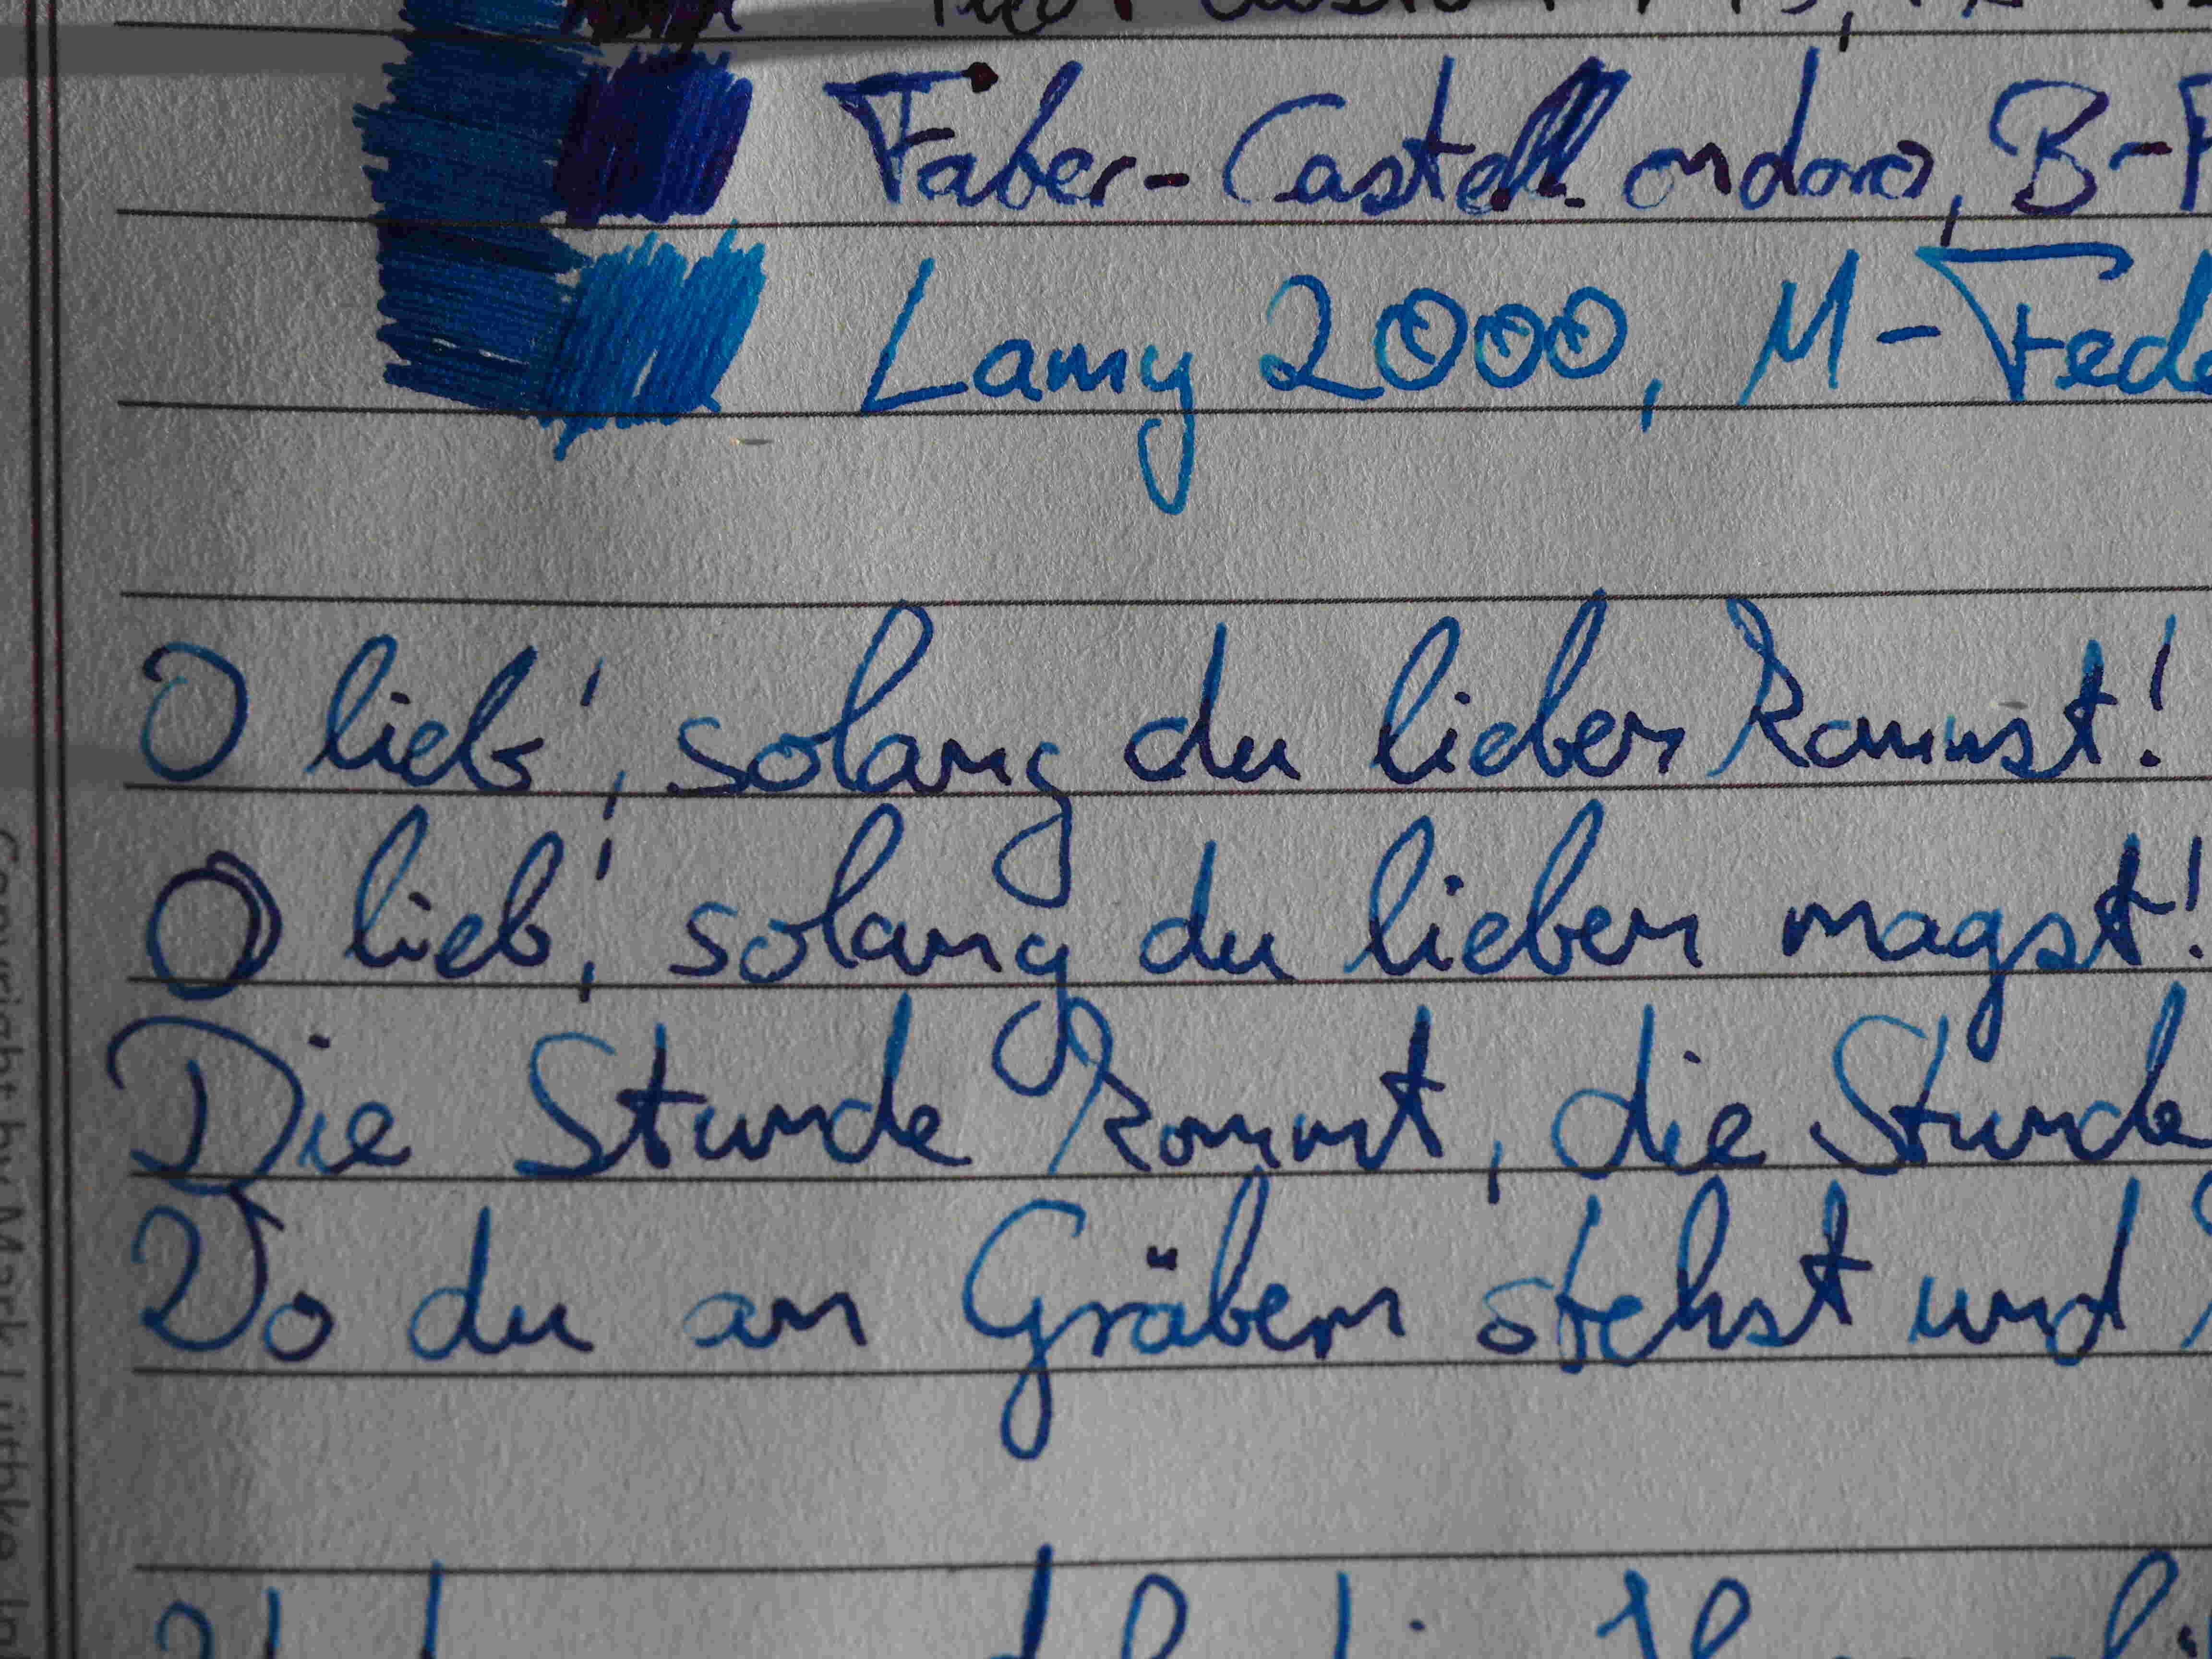 Faber-Castell ondoro, B-F
Lamy 2000, M-Fede
O lieb', solang du lieben kannst!
O lieb', solang du lieben magst!
Die Stunde kommt, die Stunde
Wo du an Gräbern stehst und
Copyright by Mark Lüthke